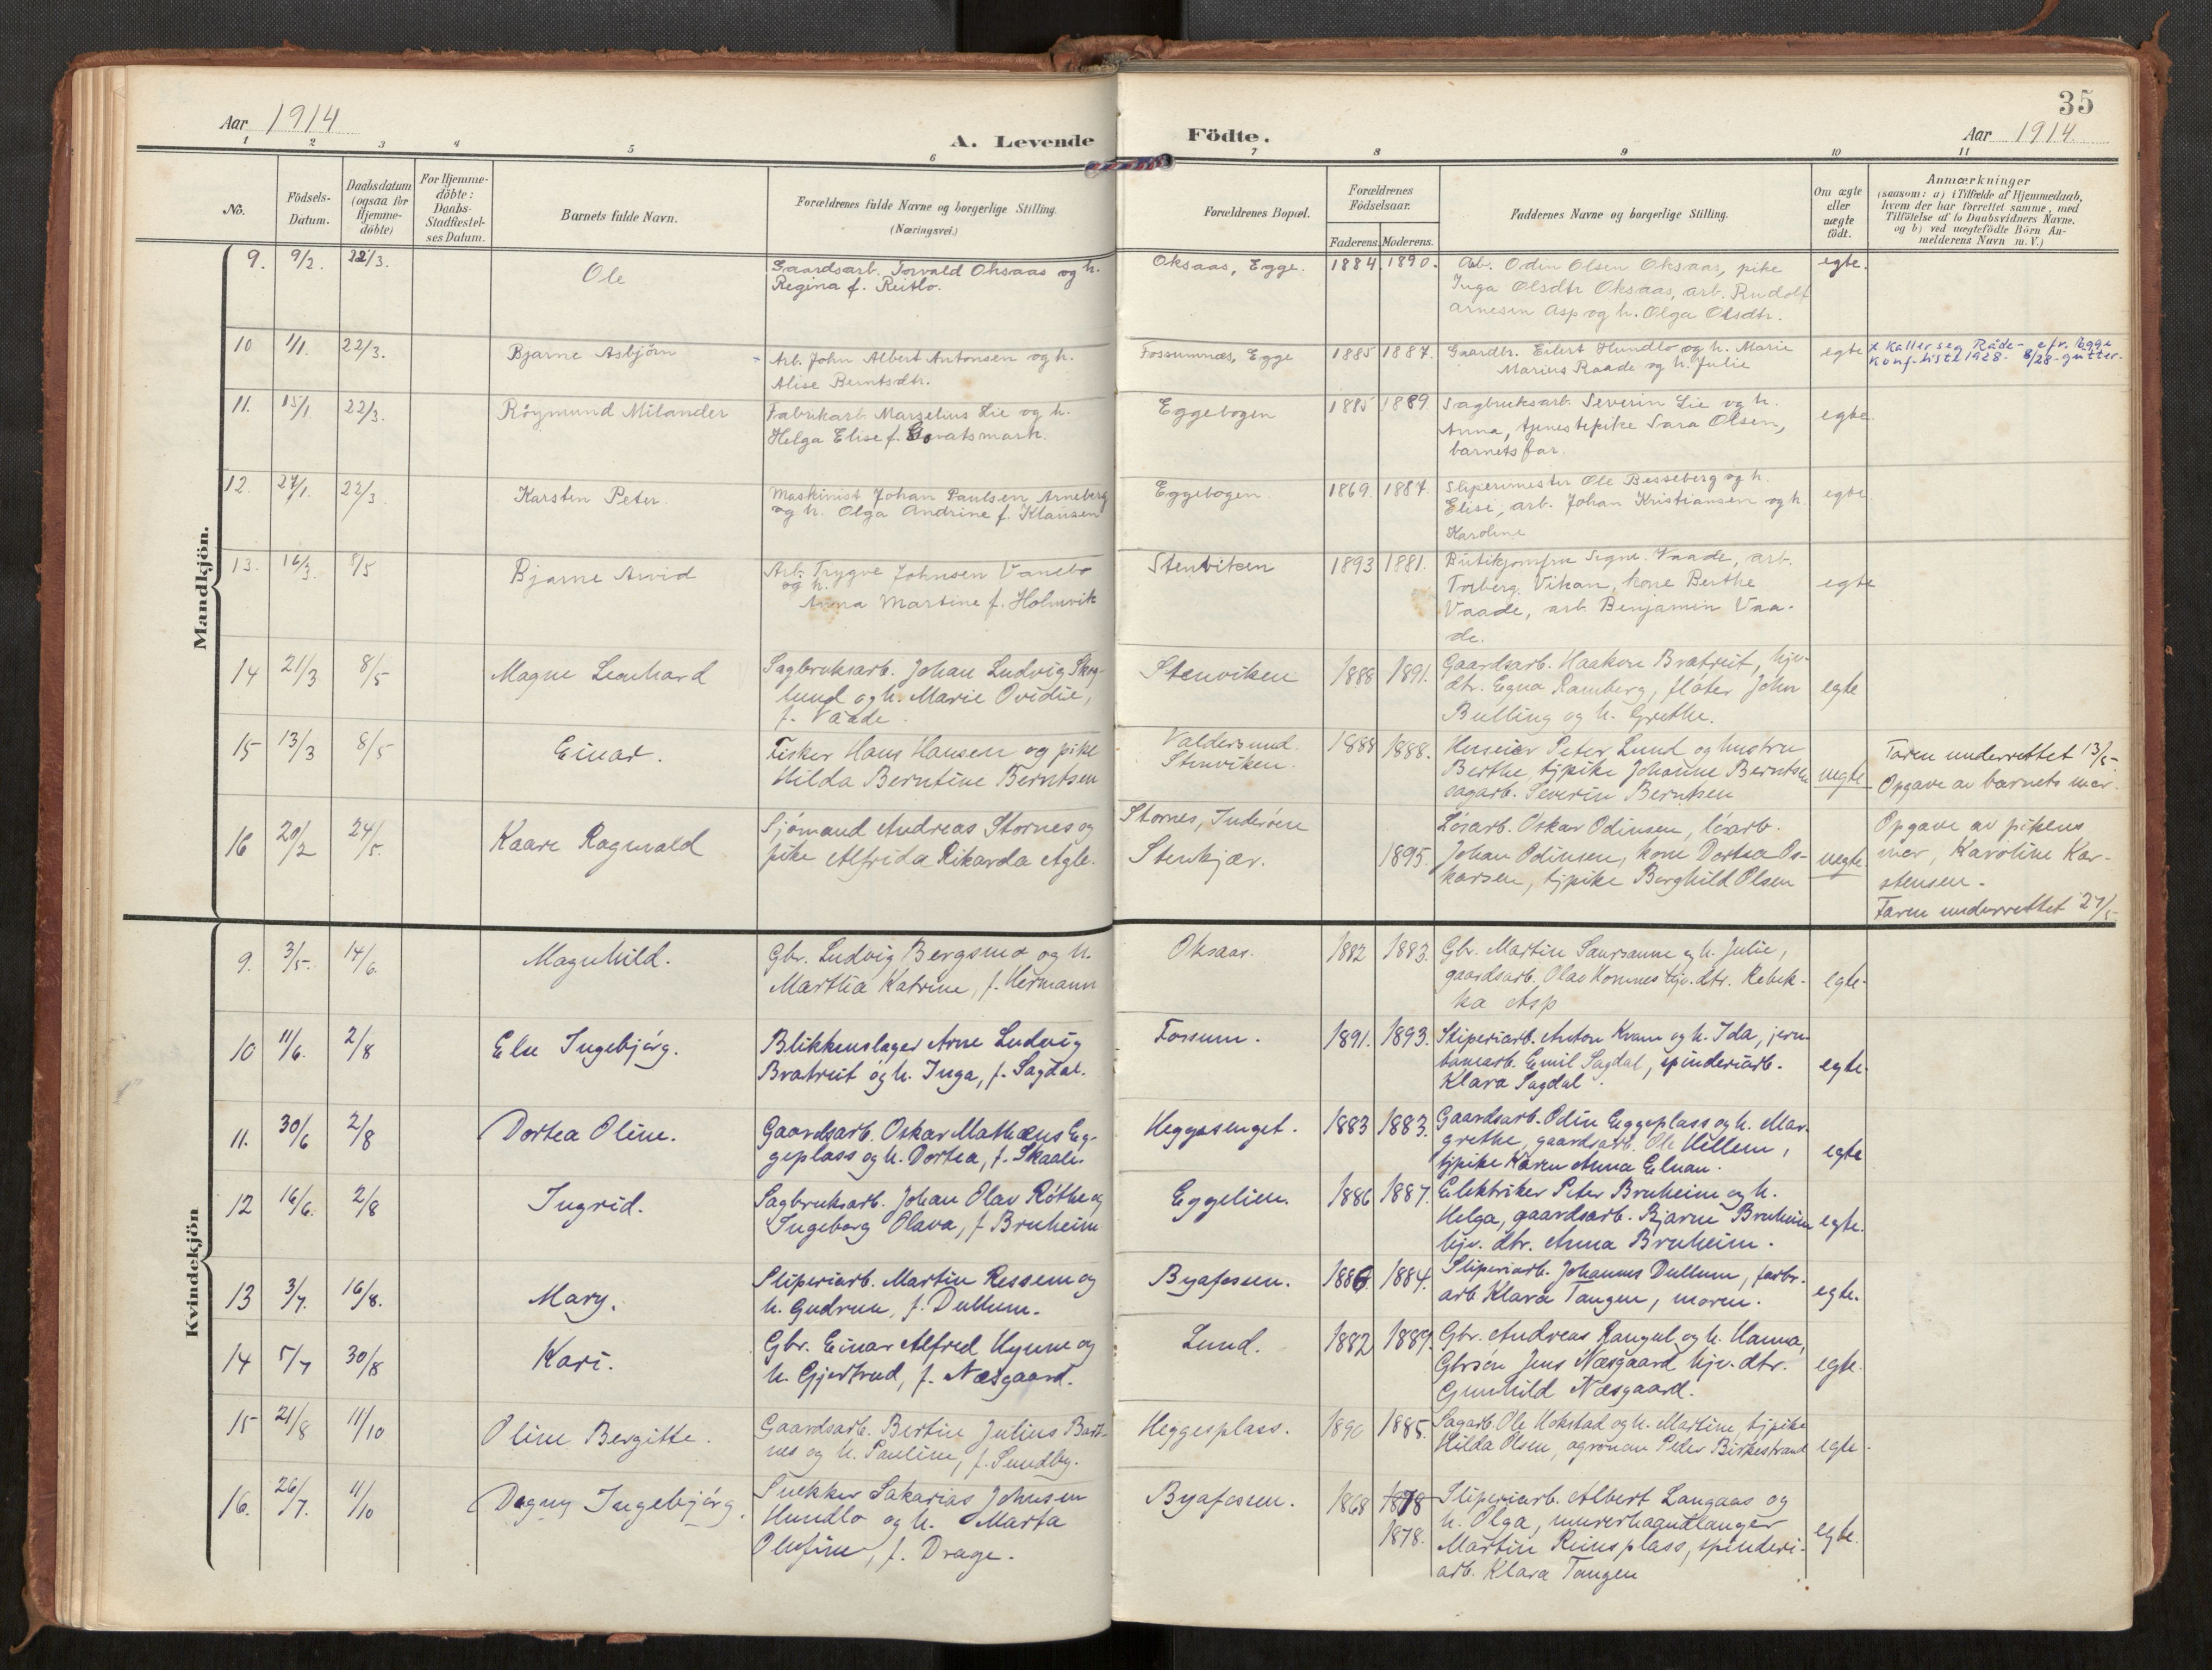 35
Aar 1914
A. Levende Födte.
Aar 1914.
1 2 3 4 5 6 7 8 9 10 11
No.
Födsels-
Datum.
Daabsdatum
(ogsaa for
Hjemme-
döbte)
For Hjemme-
döbte:
Daabs-
Stadfæstel-
ses Datum.
Barnets fulde Navn.
Forældrenes fulde Navne og borgerlige Stilling.
(Næringsvei.)
Forældrenes Bopæl.
Forældrenes
Födselsaar.
Faderens. Moderens.
Faddernes Navne og borgerlige Stilling.
Om ægte
eller
uægte
födt.
Anmærkninger
(saasom: a) i Tilfælde af Hjemmedaab,
hvem der har forrettet samme, med
Tilföielse af to Daabsvidners Navne,
og b) ved uægtefödte Börn An-
melderens Navn m. V.)
Mandkjön.
9. 9/2. 22/3.
Ole
Gaardsarb. Torvald Oksaas og h.
Regina f. Reitlo.
Oksaas, Egge. 1884. 1890.
Arb. Odin Olsen Oksaas, pike
Inga Olsdtr Oksaas, arb. Rudolf
Arnesen Asp og h. Olga Olsdtr.
egte.
10 1/1. 22/3.
Bjarne Asbjørn
Arb. John Albert Antonsen og h.
Alise Berntsdtr.
Fossumnæs, Egge 1885 1887.
Gaardbr. Eilert Hundlo og h. Marie
Marius Raade og h. Julie
egte
x Kaller seg Råde - efr. Egge
Konf. liste 1928 - 8/28 - gutter.
11. 15/1. 22/3.
Röymund Milander
Fabrikarb. Marselius Lie og h.
Helga Elise f.
Eggebogen 1885 1889.
Sagbruksarb. Severin Lie og h.
Anna, tjenestepike Sara Olsen,
barnets far.
egte
12. 27/1. 22/3
Karsten Peter.
Maskinist Johan Paulsen Arneberg
og h. Olga Andrine f. Klausen
Eggebogen 1869. 1887.
Sliperimester Ole Besseberg og h.
Elise, arb. Johan Kristiansen og h.
Karoline
egte
13. 16/3. 8/5
Bjarne Arvid
Arb. Trygve Johnsen Vanebo
og h.
Anna Martine f. Holmvik
Stenviken 1893 1881.
Butikjomfru Signe Vaade, arb.
Torberg Vikan, kone Berthe
Vaade, arb. Benjamin Vaa-
de.
egte
14 21/3 8/5
Magne Leonhard
Sagbruksarb. Johan Ludvig Skog-
lund og h. Marie Ovidie,
f. Vaade.
Stenviken 1888 1891.
Gaardsarb. Haakon Bratreit, hjv.
dtr. Egna Ramberg, fløter John
Bulling og h. Grethe.
egte
15 13/3 8/5
Einar.
Fisker Hans Hansen og pike
Hilda Berntine Berntsen
Valdersund.
Stenviken. 1888 1888.
Huseier Peter Lund og hustru
Berthe, tjpike Johanne Berntsen
sagarb. Severin Berntsen
uegte
Faren underrettet 13/5
Opgave av barnets mor.
16 20/2 24/5.
Kaare Ragnvald
Sjömand Andreas Stornes og
pike Alfrida Rikarda Agle.
Stornes, Inderøen
Stenkjær. 1895.
Løsarb. Oskar Odinsen, løsarb.
Johan Odinsen, kone Dortea Os-
karsen, tjpike Borghild Olsen
uegte
Opgave av pikens
mor, Karoline Kar-
stensen.
Faren underrettet 27/5
Kvindekjön
9. 3/5. 14/6.
Magnhild.
Gbr. Ludvig Bergsmo og h.
Martha Katrine, f. Hermann
Oksaas. 1882 1883.
Gbr. Martin Saursaune og h. Julie,
gaardsarb. Olav Homnes hjv. dtr. Rebek-
ka Asp
egte.
10 11/6. 2/8
Else Ingebjørg.
Blikkenslager Arne Ludvig
Bratreit og h. Inga, f. Sagdal.
Fossum. 1891. 1893.
Sliperiarb. Anton Kvam og h. Ida, jern-
banearb. Emil Sagdal, spinderiarb.
Klara Sagdal.
egte.
11. 30/6 2/8
Dortea Oline.
Gaardsarb. Oskar Mathæus Eg-
geplass og h. Dortea, f. Skaale.
Heggesenget. 1883 1883.
Gaardsarb. Odin Eggeplass og h. Mar-
grethe, gaardsarb. Ole Hellem,
tjpike Karen Anna Elnan.
egte
12 16/6. 2/8
Ingrid.
Sagbruksarb. Johan Olav Röthe og
Ingeborg Olava, f. Bruheim
Eggelien. 1886 1887.
Elektriker Peter Bruheim og h.
Helga, gaardsarb. Bjarne Bruheim
hjv. dtr. Anna Bruheim.
egte.
13 3/7. 16/8.
Mary.
Sliperiarb. Martin Ressem og
h. Gudrun, f. Dullum.
Byafossen. 1886. 1884.
Sliperiarb. Johannes Dullum, fabr.
arb Klara Tangen, moren.
egte.
14 5/7 30/8
Kari.
Gbr. Einar Alfred Hynne og
h. Gjertrud, f. Næsgaard.
Lund. 1882 1889.
Gbr. Andreas Rangul og h. Hanna,
Gbrsøn Jens Næsgaard hjv. dtr.
Gunhild Næsgaard.
egte.
15 21/8 11/10
Oline Bergitte.
Gaardsarb. Bertin Julius Bart-
nes og h. Pauline, f. Sundby.
Heggesplass. 1890 1885.
Sagarb. Ole Hokstad og h. Martine, tjpike
Hilda Olsen, agronom Peder Birkestrand
egte.
16. 26/7. 11/10
Dagny Ingebjørg.
Snekker Sakarias Johnsen
Hundlo og h. Marta
Olufine, f. Drage.
Byafossen. 1868 1878
1878.
Sliperiarb. Albert Langaas og
h. Olga, murerhaandlanger
Martin Reinsplass, spinderi-
arb. Klara Tangen
egte.